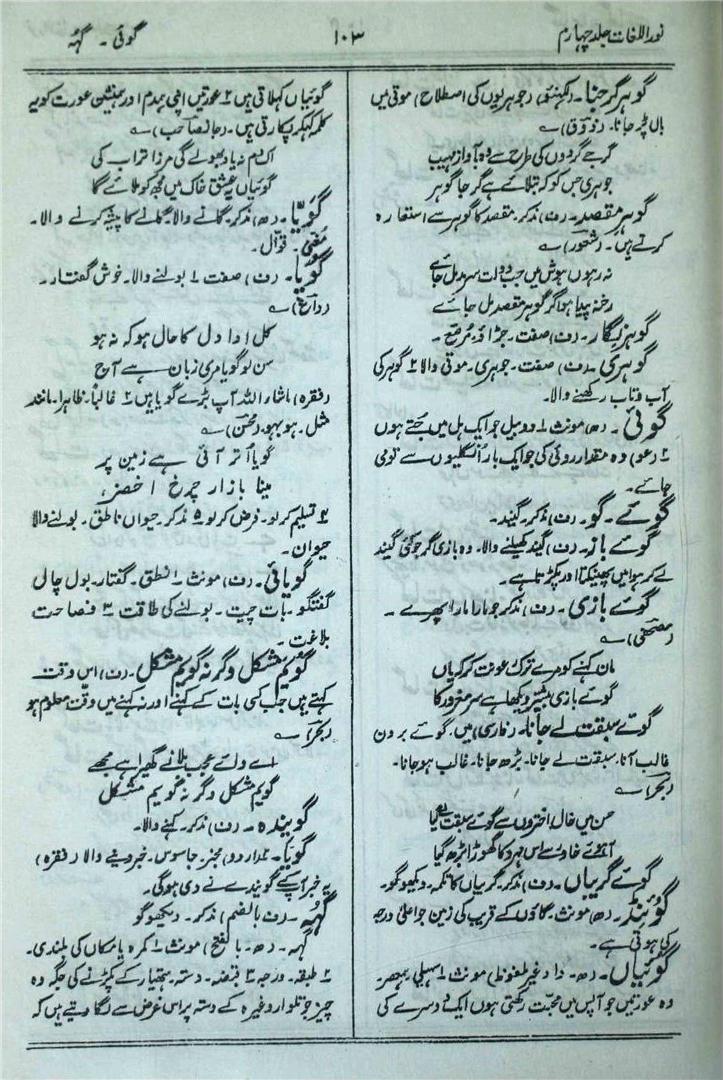 نور اللغات جلد چہارم
۱۰۳
گوئی ۔ گہہ
گوہر گرجنا۔ (لکھنؤ) (جوہریوں کی اصطلاح) موتی میں
بال پڑ جانا۔ (ذوق) ؎
گرجے گردوں کی طرح سے وہ بآواز مہیب
جوہری جس کو کہ بتلائے ہے گرجا گوہر
گوہر مقصد۔ (ف) مذکر۔ مقصد کا گوہر سے استعارہ
کرتے ہیں۔ (شعور) ؎
نہ رہوں ہوش میں جب دولت سرمد مل جائے
رخنہ پیدا ہو اگر گوہر مقصد مل جائے
گوہر نگار۔ (ف) صفت۔ جڑاؤ۔ مرصع۔
گوہری۔ (ف) صفت۔ جوہری۔ موتی والا ۲ گوہر کی
آب و تاب رکھنے والا۔
گوئی۔ (ھ) مونث ۱ دو بیل جو ایک ہل میں جتے ہوں
۲ (عو) وہ مقدار روئی کی جو ایک بار انگلیوں سے تومی
جائے۔
گوئے۔ گو۔ (ف) مذکر۔ گیند۔
گوئے باز۔ (ف) گیند کھیلنے والا۔ وہ بازی گر جو کئی گیند
لے کر ہوا میں پھینکتا اور پکڑتا ہے۔
گوئے بازی۔ (ف) مذکر جو مارا مارا پھرے۔
(مصحفی) ؎
مان کہنے کو مرے ترک رعونت کر کہ یاں
گوئے بازی بیشتر دیکھا ہے سر مغرور کا
گوئے سبقت لے جانا۔ (فارسی) میں۔ گوئے بردن
غالب آنا۔ سبقت لے جانا۔ بڑھ جانا۔ غالب ہو جانا۔
(بحر) ؎
حسن میں خال اختروں سے گوئے سبقت لے گیا
آہوئے خاور سے اس مہرو کا گھوڑا بڑھ گیا
گوئے گریباں۔ (ف) مذکر۔ گریباں کا تکمہ۔ دیکھو گو۔
گوئنڈ۔ (ھ) مونث۔ گاؤں کے قریب کی زمین جو اعلیٰ درجہ
کی ہوتی ہے۔
گوئیاں۔ (ھ۔ واو غیر ملفوظ) مونث ۱ سہیلی ہمسر
وہ عورتیں جو آپس میں محبت رکھتی ہوں ایک دوسرے کی
گوئیاں کہلاتی ہیں ۲ عورتیں اپنی ہمدم اور ہمنشین عورت کو یہ
کلمہ کہہ کر پکارتی ہیں۔ (جانصاحب) ؎
اک دم نہ یاد بھولے گی مرزا تراب کی
گوئیاں یہ عشق خاک میں مجھ کو ملائے گا
گویّا۔ (ھ) مذکر۔ گانے والا۔ گانے کا پیشہ کرنے والا۔
مغنی۔ قوال۔
گویا۔ (ف) صفت ۱ بولنے والا۔ خوش گفتار۔
(داغ) ؎
کل ادا دل کا حال ہو کہ نہ ہو
سن لو گویا مری زبان ہے آج
(فقرہ) ماشاء اللہ آپ بڑے گویا ہیں ۲ غالباً۔ ظاہرا۔ مانند
مثل۔ ہو بہو۔ (محسن) ؎
گویا اتر آئی ہے زمین پر
مینا بازار چرخ اخضر
۴ تسلیم کر لو۔ فرض کر لو ۵ مذکر۔ حیوان ناطق۔ بولنے والا
حیوان۔
گویائی۔ (ف) مونث ۱ نطق۔ گفتار۔ بول چال
گفتگو۔ بات چیت۔ بولنے کی طاقت ۳ فصاحت
بلاغت۔
گویم مشکل وگرنہ گویم مشکل۔ (ف) اس وقت
کہتے ہیں جب کسی بات کے کہنے اور نہ کہنے میں دقّت معلوم ہو
(بحر) ؎
اے وائے عجب بلانے گھیرا ہے مجھے
گویم مشکل وگرنہ گویم مشکل
گویندہ۔ (ف) مذکر۔ کہنے والا۔
(اردو) مخبر۔ جاسوس۔ خبر دینے والا (فقرہ)
یہ خبر آپ کے گویندے نے دی ہوگی۔
گہہ۔ (ف بالضم) مذکر۔ دیکھو گو
گہہ۔ (ھ۔ بالفتح) مونث ۱ کمرہ یا مکاں کی بلندی۔
۲ طبقہ۔ درجہ ۳ قبضہ۔ دستہ۔ ہتھیار کے پکڑنے کی جگہ وہ
چیز جو تلوار وغیرہ کے دستہ پر اس غرض سے لگا دیتے ہیں کہ